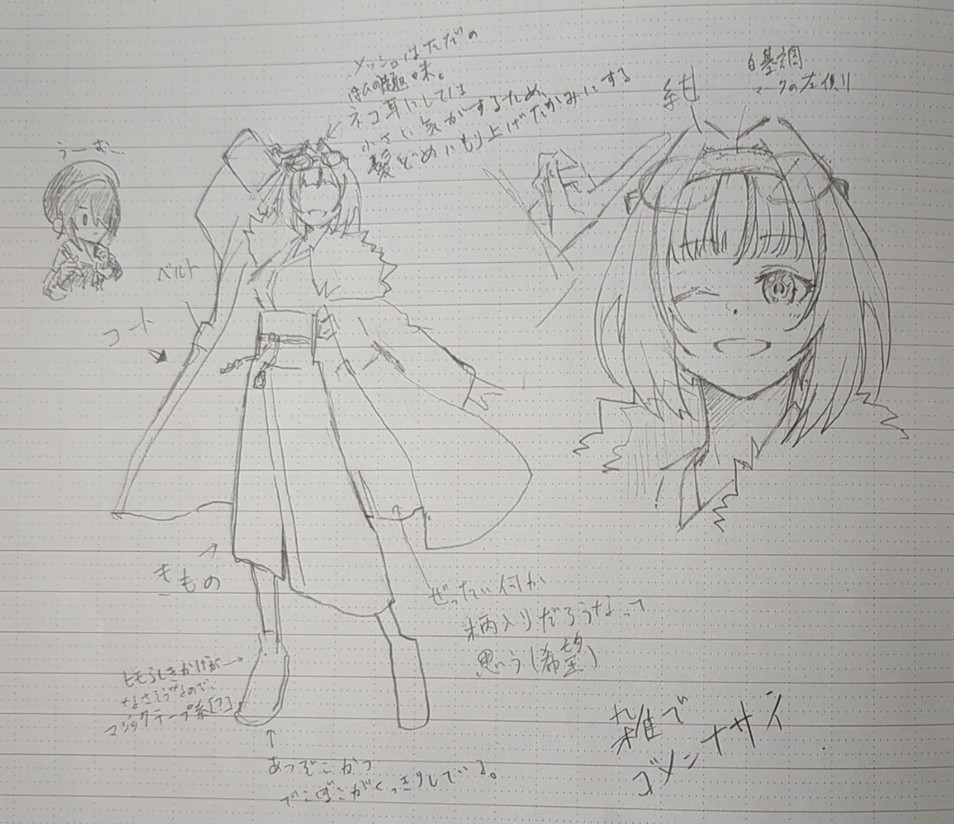 メッシュはただの
趣味。
ネコ耳にしては
小さい気がするため、
髪どめにもり上げたかみにする
白基調
マークの左側リ
純
うーむ…
ベルト
コート
きもの
ぜったい何か
柄入りだろうなって
思いう(希望)
ヒモらしきかげが
なさそうなので、
マジックテープ系[?]
あつぞこかつ
でこぼこがくっきりしている。
雑で
ゴメンナサイ